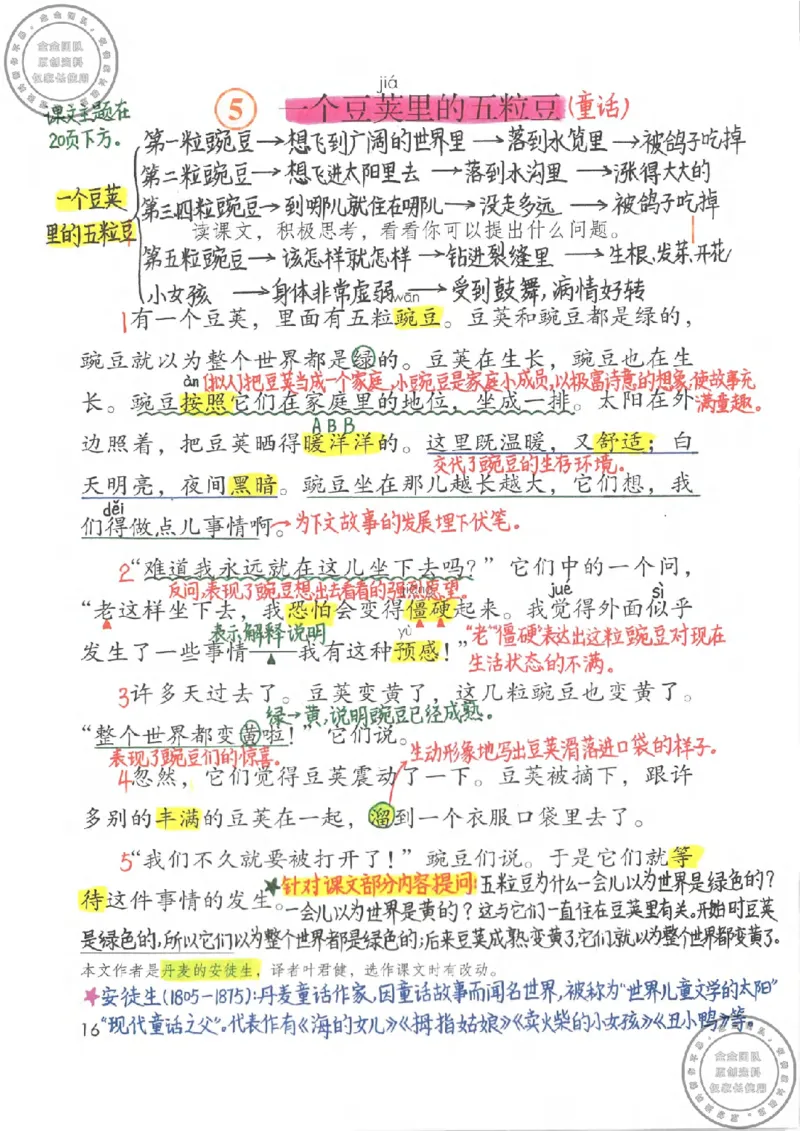 金金团队
原创资料
仅家长使用
课文主题在
20页下方。
jiá
5 一个豆荚里的五粒豆(童话)
一个豆荚
里的五粒豆
第一粒豌豆→想飞到广阔的世界里→落到水笕里→被鸽子吃掉
第二粒豌豆→想飞进太阳里去→落到水沟里→涨得大大的
第三四粒豌豆→到哪儿就住在哪儿→没走多远→被鸽子吃掉
读课文，积极思考，看看你可以提出什么问题。
第五粒豌豆→该怎样就怎样→钻进裂缝里→生根、发芽、开花
小女孩→身体非常虚弱→受到鼓舞,病情好转
wān
1有一个豆荚，里面有五粒豌豆。豆荚和豌豆都是绿的，
豌豆就以为整个世界都是绿的。豆荚在生长，豌豆也在生
àn (拟人)把豆荚当成一个家庭,小豌豆是家庭小成员,以极富诗意的想象,使故事充
满童趣。
长。豌豆按照它们在家庭里的地位，坐成一排。太阳在外
ABB
边照着，把豆荚晒得暖洋洋的。这里既温暖，又舒适；白
交代了豌豆的生存环境。
天明亮，夜间黑暗。豌豆坐在那儿越长越大，它们想，我
děi
们得做点儿事情啊。→为下文故事的发展埋下伏笔。
2“难道我永远就在这儿坐下去吗？”它们中的一个问，
反问,表现了豌豆想出去看看的强烈愿望。
jué sì
“老这样坐下去，我恐怕会变得僵硬起来。我觉得外面似乎
表示解释说明 yù
“老”“僵硬”表达出这粒豌豆对现在
生活状态的不满。
发生了一些事情——我有这种预感！”
3许多天过去了。豆荚变黄了，这几粒豌豆也变黄了。
绿→黄,说明豌豆已经成熟。
“整个世界都变黄啦！”它们说。
表现了豌豆们的惊喜。
生动形象地写出豆荚滑落进口袋的样子。
4忽然，它们觉得豆荚震动了一下。豆荚被摘下，跟许
多别的丰满的豆荚在一起，溜到一个衣服口袋里去了。
5“我们不久就要被打开了！”豌豆们说。于是它们就等
待这件事情的发生。
★针对课文部分内容提问:五粒豆为什么一会儿以为世界是绿色的?
一会儿以为世界是黄的?这与它们一直住在豆荚里有关。开始时豆荚
是绿色的,所以它们以为整个世界都是绿色的;后来豆荚成熟,变黄了,它们就以为整个世界都变黄了。
本文作者是丹麦的安徒生，译者叶君健，选作课文时有改动。
★安徒生(1805-1875):丹麦童话作家,因童话故事而闻名世界,被称为“世界儿童文学的太阳”
16“现代童话之父”。代表作有《海的女儿》《拇指姑娘》《卖火柴的小女孩》《丑小鸭》等。
金金团队
原创资料
仅家长使用